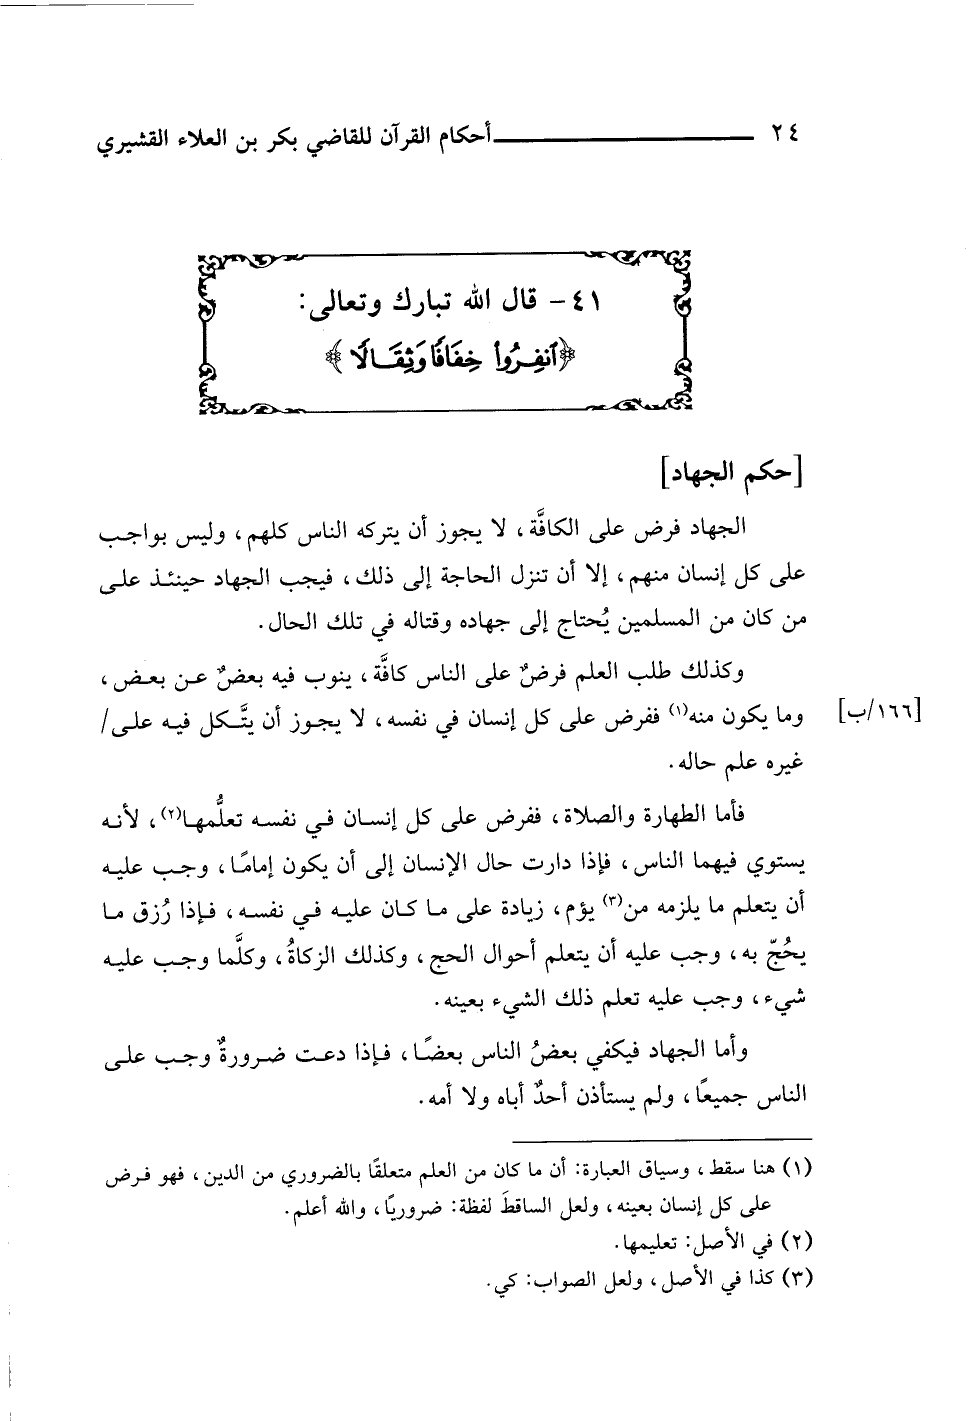 ٢٤ أحكام القرآن للقاضي بكر بن العلاء القشيري
٤١- قال الله تبارك وتعالى:
﴿ٱنفِرُواْ خِفَافٗا وَثِقَالٗا﴾
[حكم الجهاد]
الجهاد فرض على الكافَّة، لا يجوز أن يتركه الناس كلهم، وليس بواجب
على كل إنسان منهم، إلا أن تنزل الحاجة إلى ذلك، فيجب الجهاد حينئذ على
من كان من المسلمين يُحتاج إلى جهاده وقتاله في تلك الحال.
وكذلك طلب العلم فرضٌ على الناس كافَّة، ينوب فيه بعضٌ عن بعض،
وما يكون منه(١) ففرض على كل إنسان في نفسه، لا يجوز أن يتَّكل فيه على/ [١٦٦/ب]
غيره علم حاله.
فأما الطهارة والصلاة، ففرض على كل إنسان في نفسه تعلُّمها(٢)، لأنه
يستوي فيهما الناس، فإذا دارت حال الإنسان إلى أن يكون إمامًا، وجب عليه
أن يتعلم ما يلزمه من(٣) يؤم، زيادة على ما كان عليه في نفسه، فإذا رُزق ما
يحُجّ به، وجب عليه أن يتعلم أحوال الحج، وكذلك الزكاةُ، وكلَّما وجب عليه
شيء، وجب عليه تعلم ذلك الشيء بعينه.
وأما الجهاد فيكفي بعضُ الناس بعضًا، فإذا دعت ضرورةٌ وجب على
الناس جميعًا، ولم يستأذن أحدٌ أباه ولا أمه.
(١) هنا سقط، وسياق العبارة: أن ما كان من العلم متعلقًا بالضروري من الدين، فهو فرض
على كل إنسان بعينه، ولعل الساقطَ لفظة: ضروريًا، والله أعلم.
(٢) في الأصل: تعليمها.
(٣) كذا في الأصل، ولعل الصواب: كي.